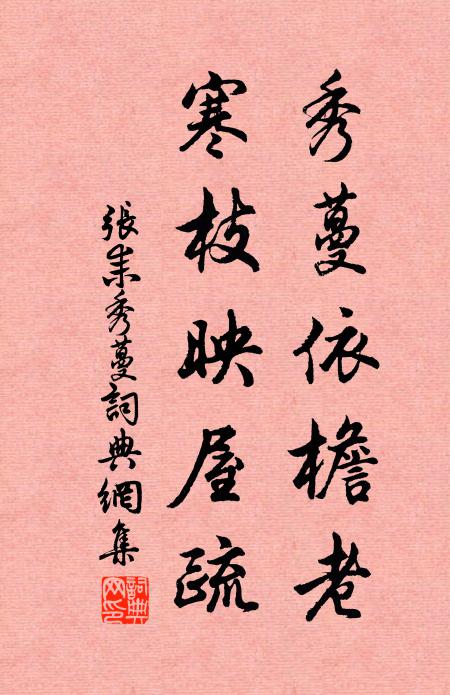 秀蔓依檐老
寒枝映屋疏
張耒秀蔓詞典網集